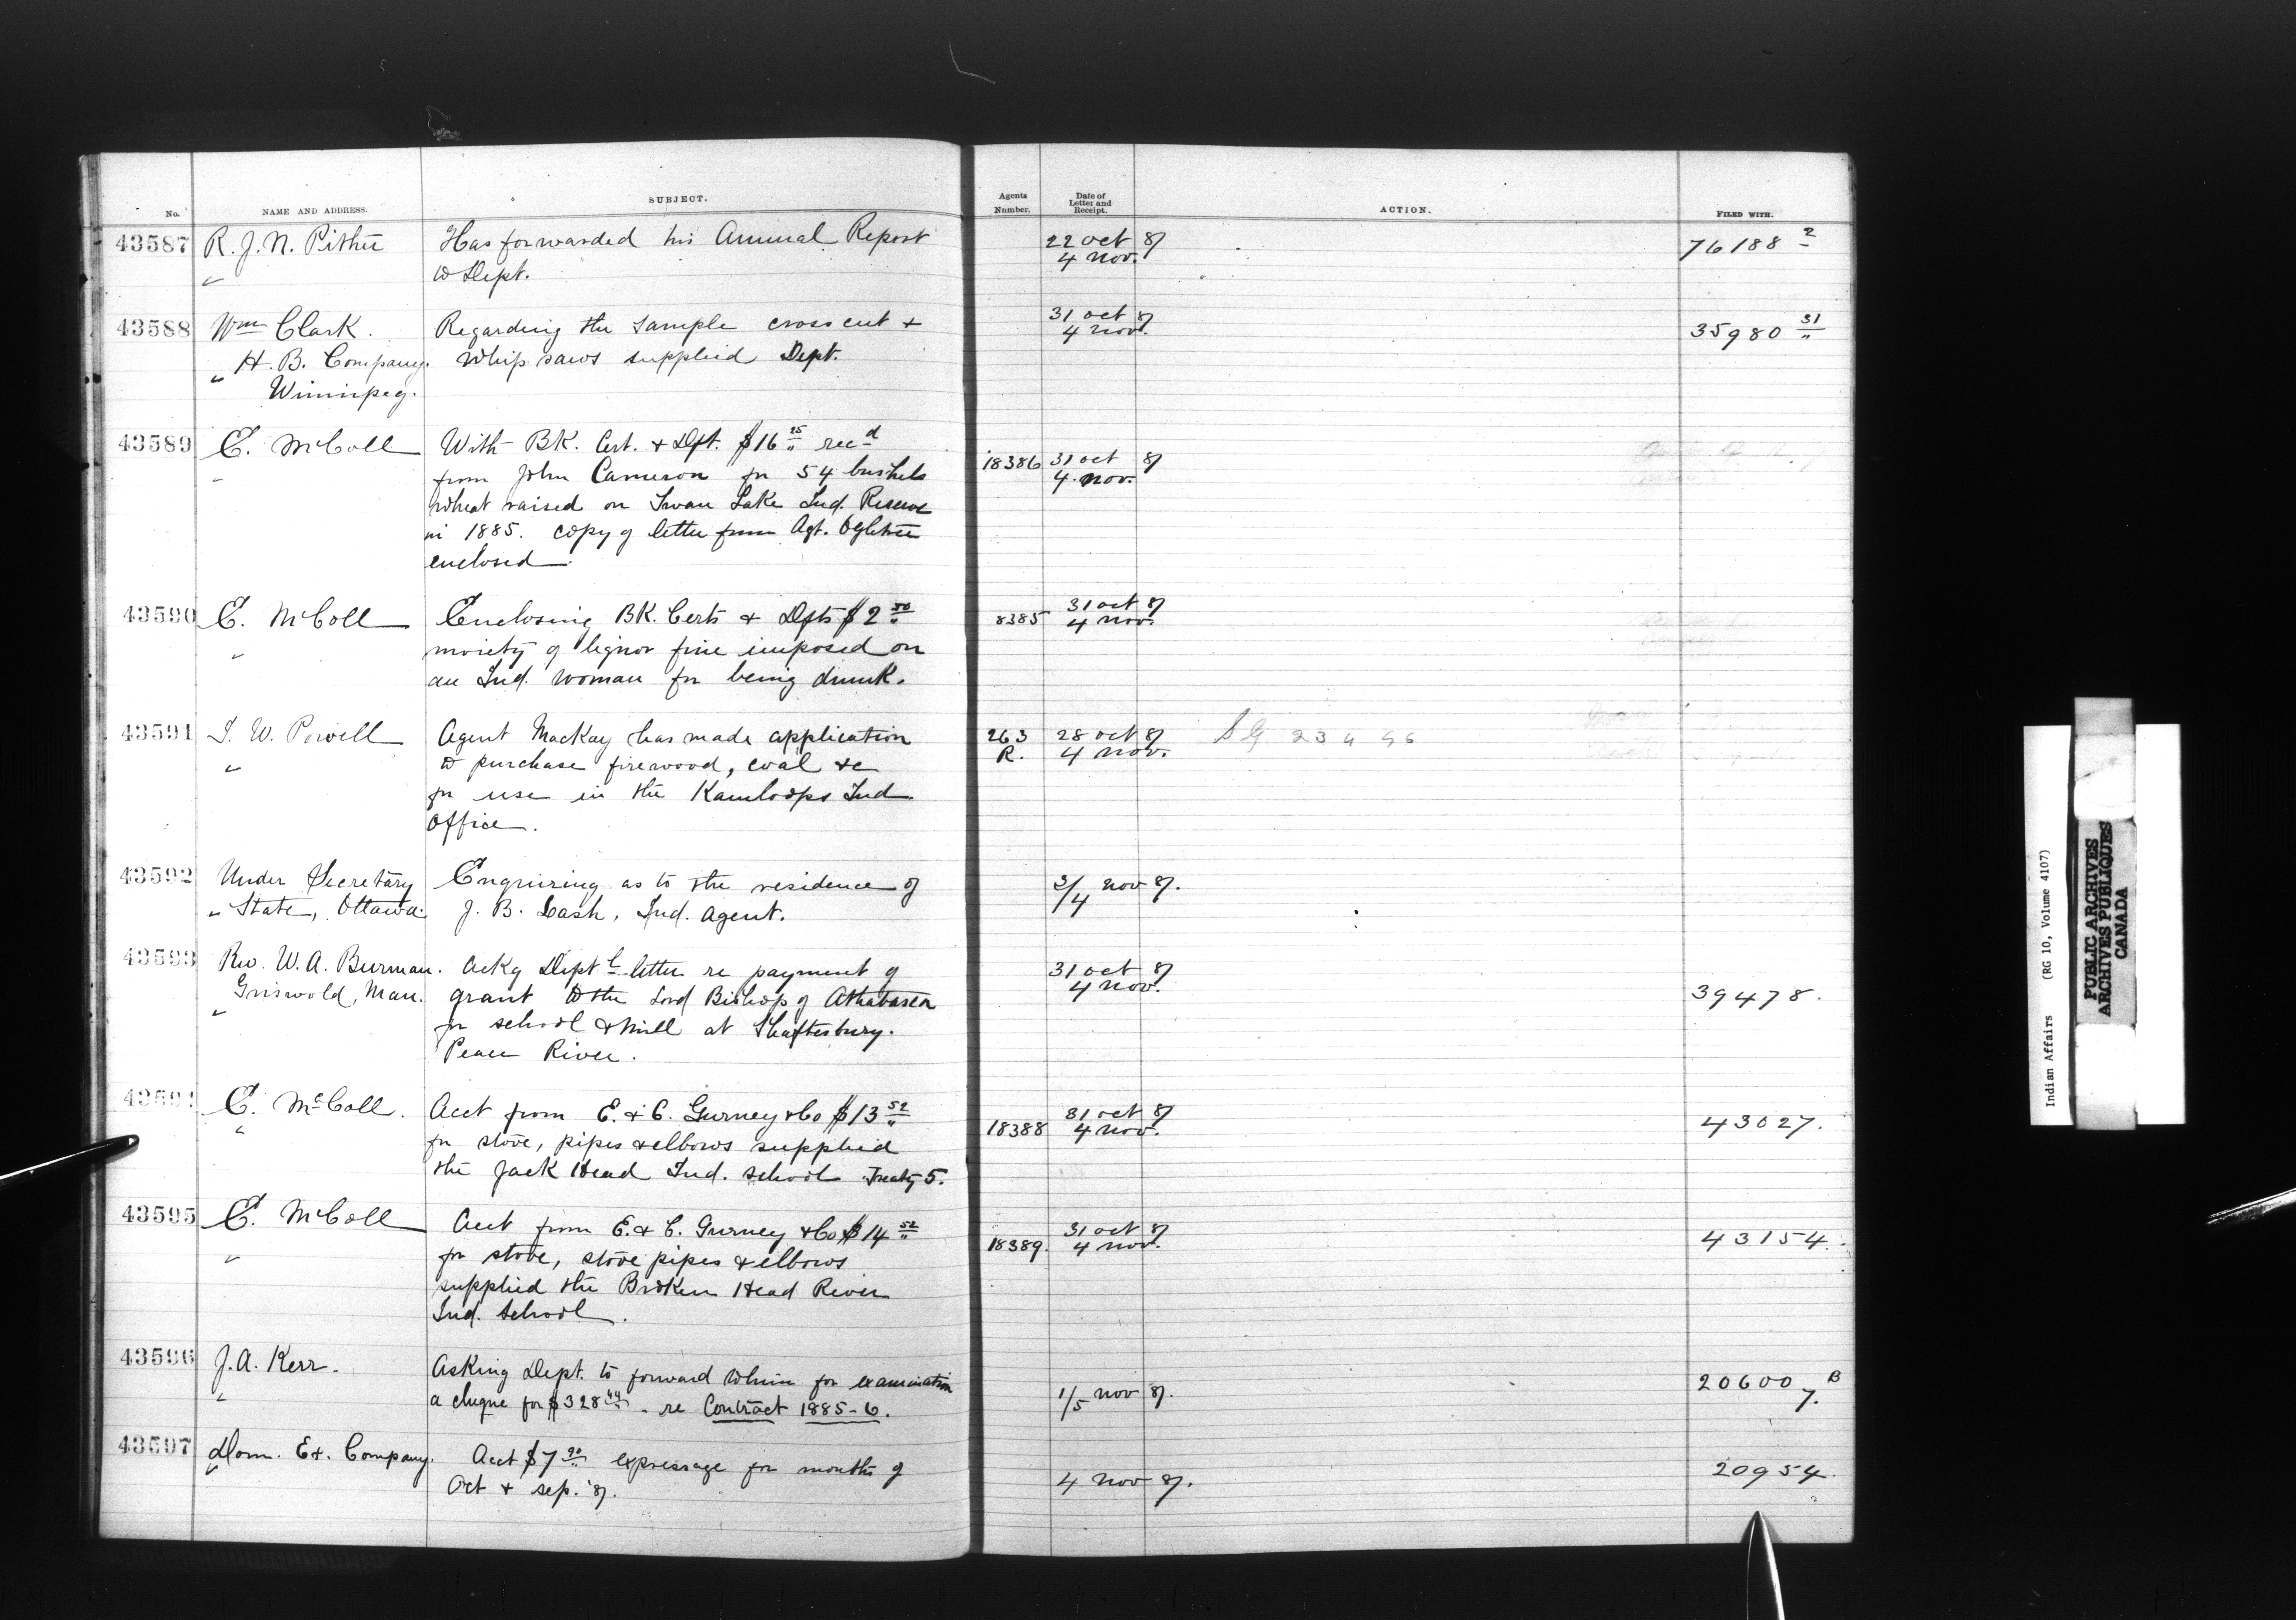 No. NAME AND ADDRESS. SUBJECT. Agents Number. Date of Letter and Receipt. ACTION. FILED WITH.
43587 R. J. N. Pither Has forwarded his Annual Report 22 Oct 87 76188 2
" to Dept. 4 Nov.
43588 Wm Clark. Regarding the sample cross cut + 31 Oct 87 35980 31
" H. B. Company. Whip saws supplied Dept. 4 Nov.
Winnipeg.
43589 E. McColl With BK. Cert. + Dft. $16 25 recd
" from John Cameron for 54 bushels 18386 31 Oct 87
wheat raised on Swan Lake Ind. Reserve 4 Nov.
in 1885. copy of letter from Agt. Ogletree
enclosed.
43590 E. McColl Enclosing BK. Certs + Dfts $2 50 8385 31 Oct 87
" moiety of liquor fine imposed on 4 Nov.
an Ind. woman for being drunk.
43591 I. W. Powell Agent MacKay has made application 263 28 Oct 87
" to purchase firewood, coal &c R. 4 Nov.
for use in the Kamloops Ind
Office.
43592 Under Secretary Enquiring as to the residence of 3/4 Nov 87.
" State, Ottawa. J. B. Lash, Ind. Agent.
43593 Rev. W. A. Burman. Ackg Deptl letter re payment of 31 Oct 87
Griswold, Man. grant to the Lord Bishop of Athabasca 4 Nov. 39478.
" for school + mill at Shaftesbury.
Peace River.
43594 E. McColl. Acct from E. + C. Gurney + Co $13 52 31 Oct 87 43027.
" for stove, pipes + elbows supplied 18388 4 Nov.
the Jack Head Ind. School Treaty 5.
43595 E. McColl Acct from E. + C. Gurney + Co $14 52 31 Oct 87 43154.
" for stove, stove pipes + elbows 18389. 4 Nov.
supplied the Broken Head River
Ind. School.
43596 J. A. Kerr. Asking Dept. to forward to him for examination 20600 B
" a cheque for $328 44 - re Contract 1885-6. 1/5 Nov 87. 7.
43597 Dom. Ex. Company. Acct $7 90 expressage for months of 20954.
" Oct + Sep. '87. 4 Nov 87.
Indian Affairs (RG 10, Volume 4107)
PUBLIC ARCHIVES
ARCHIVES PUBLIQUES
CANADA